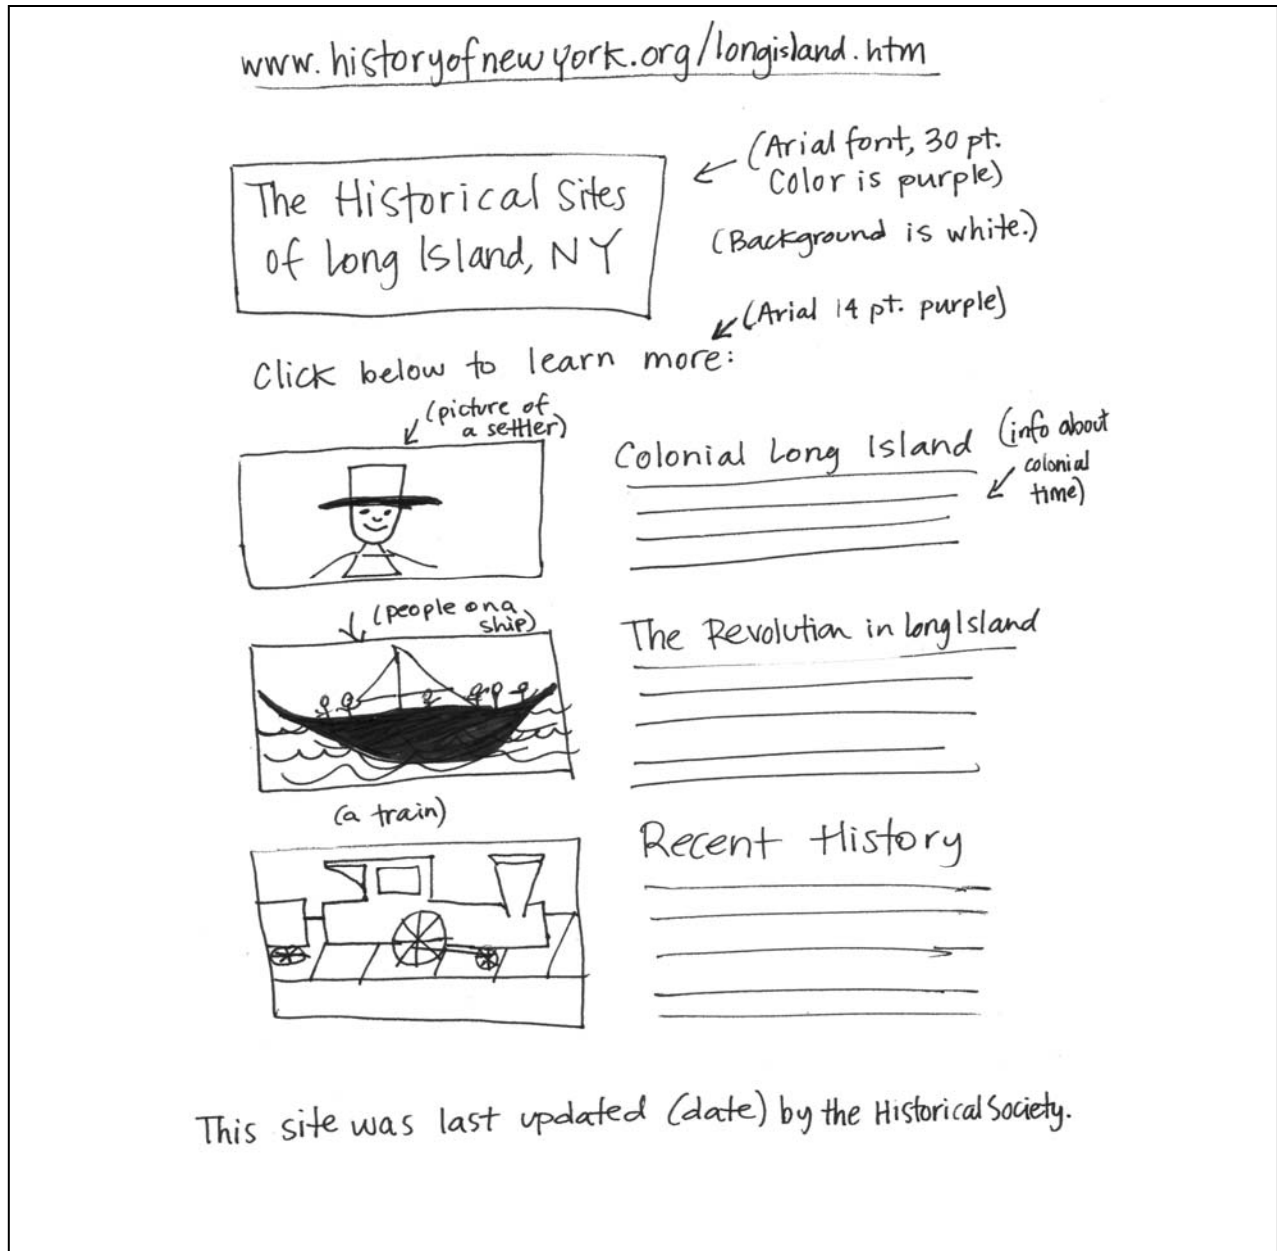 www.historyofnewyork.org/longisland.htm
(Arial font, 30 pt.
Color is purple)
The Historical Sites
of Long Island, NY
(Background is white.)
(Arial 14 pt. purple)
Click below to learn more:
(picture of
a settler)
Colonial Long Island
(info about
colonial
time)
(people on a
ship)
The Revolution in Long Island
(a train)
Recent History
This site was last updated (date) by the Historical Society.